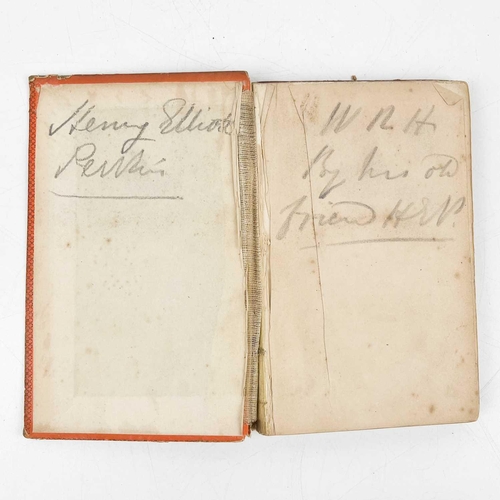 Henry Elliott
Perkins
W R H
By his old
friend H.E.P.